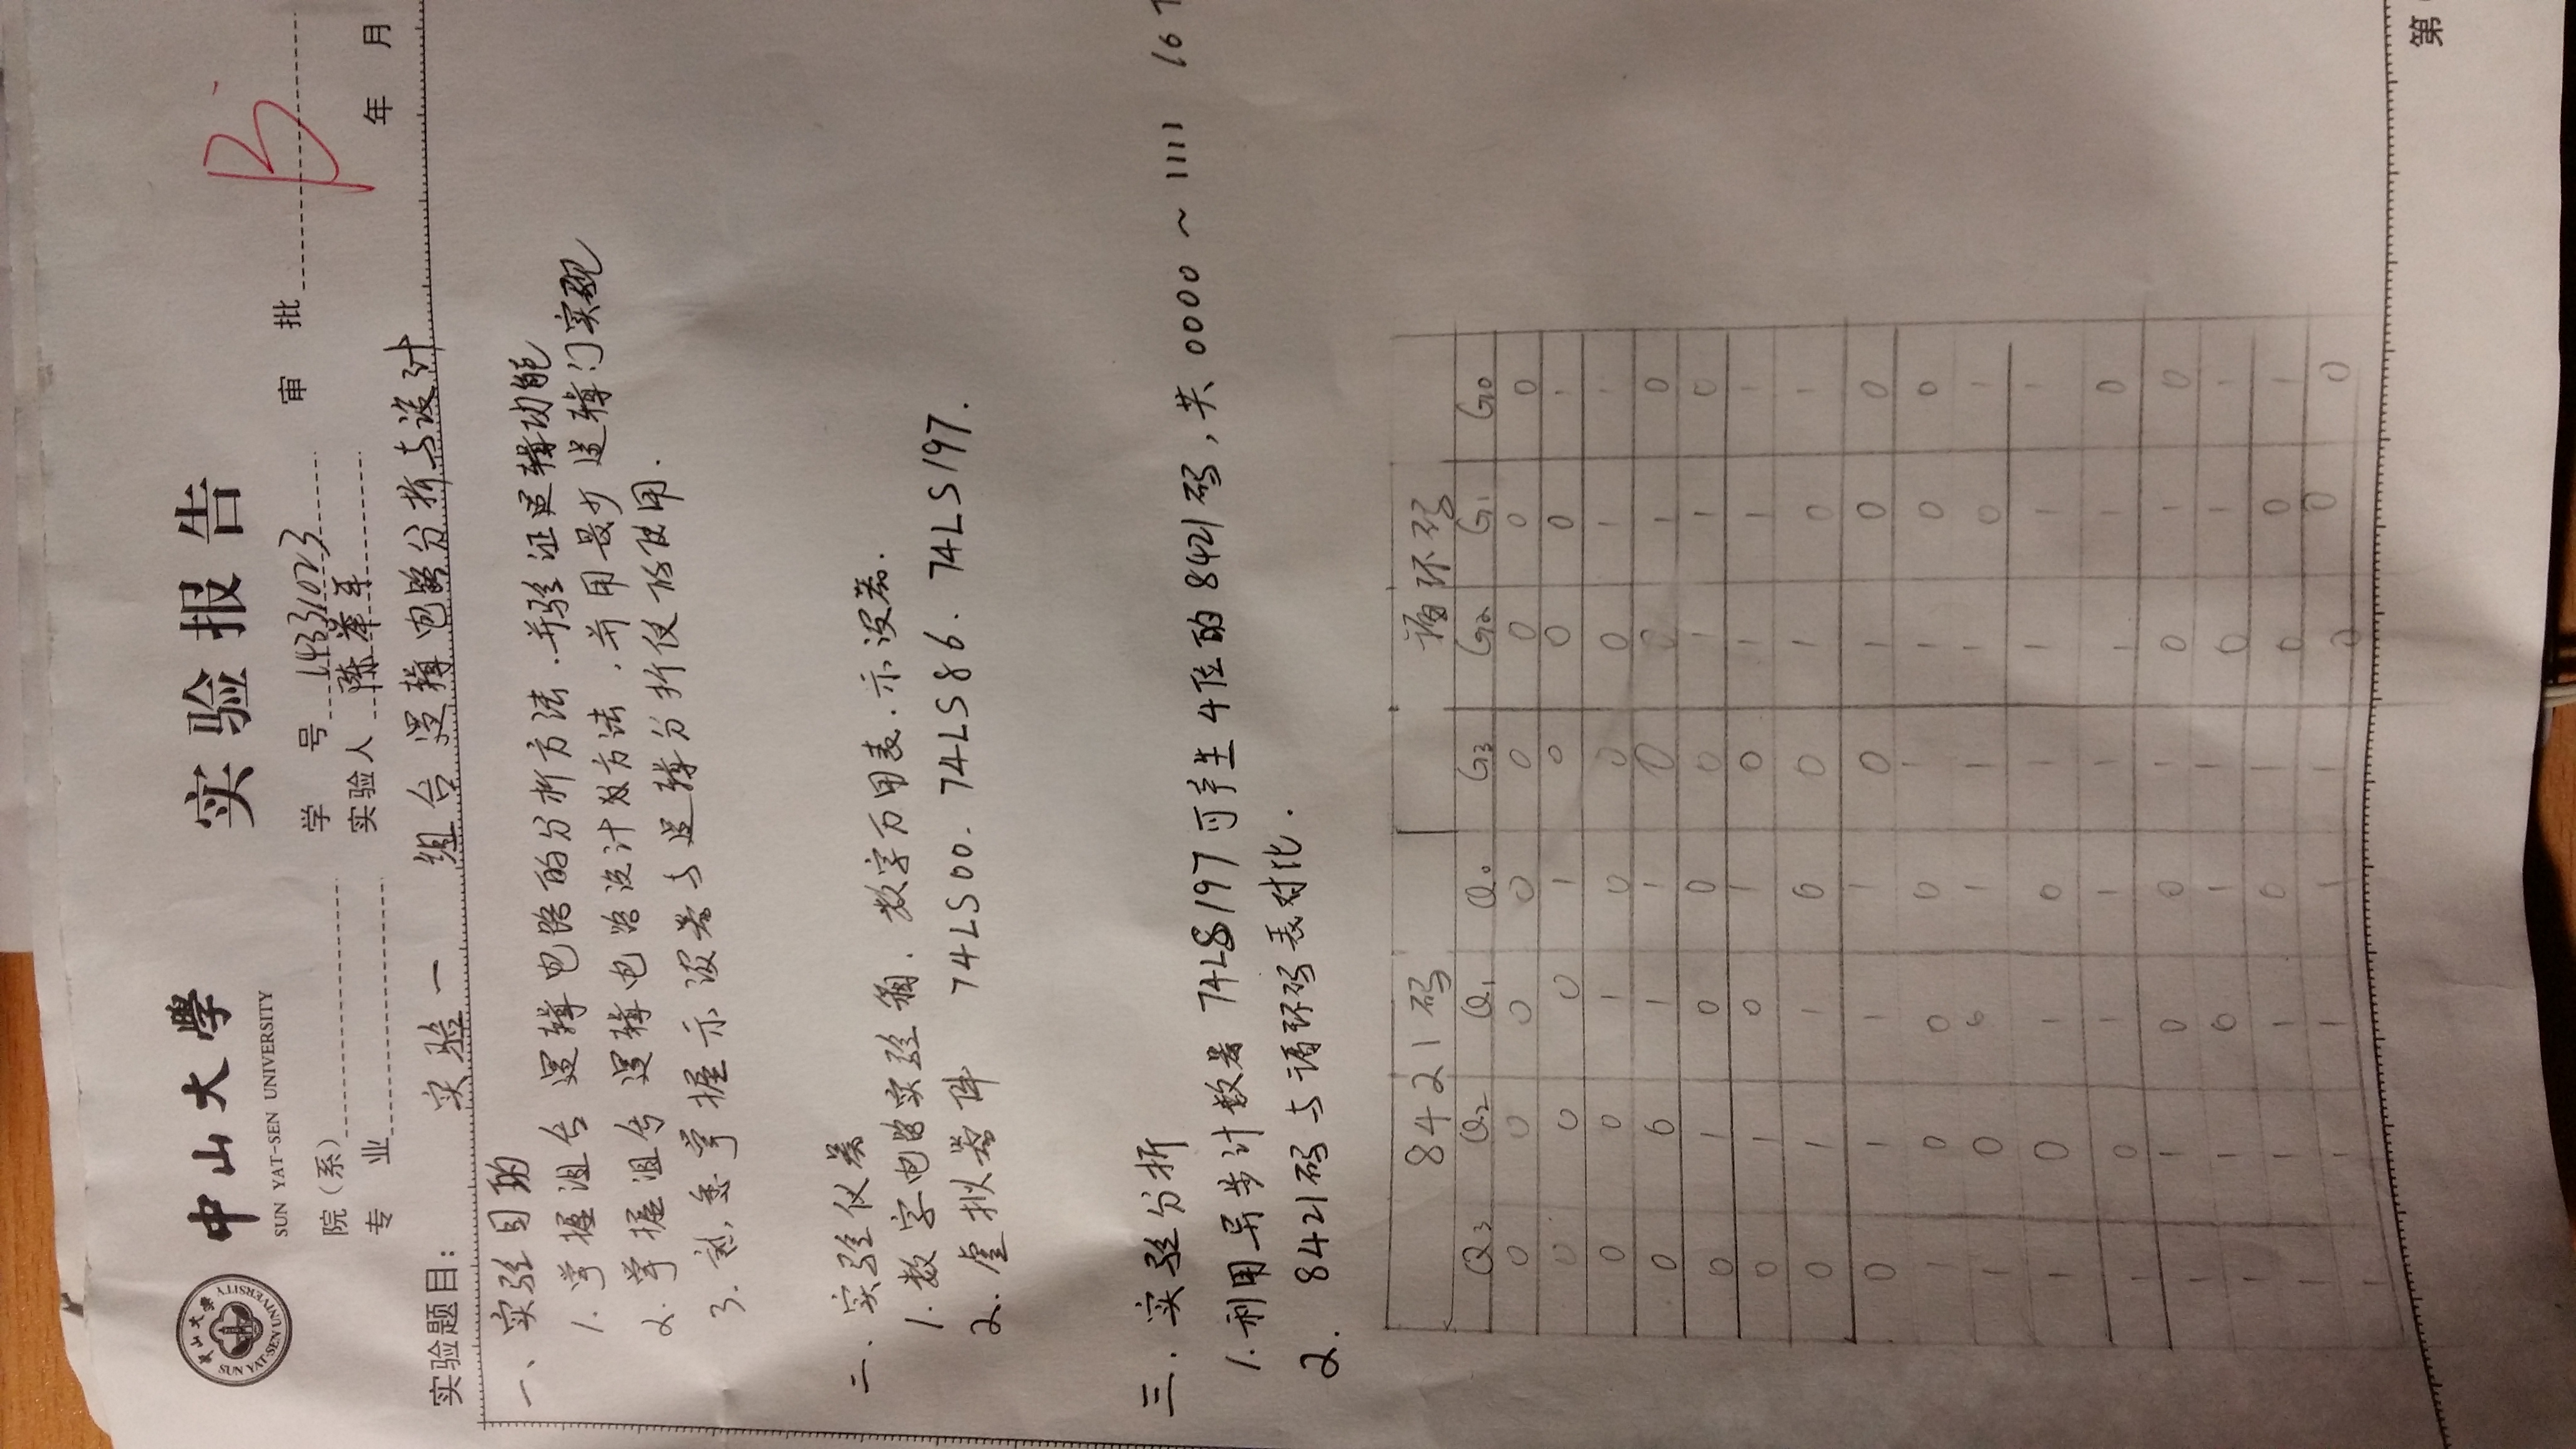 中山大學
SUN YAT-SEN UNIVERSITY
中山大學
SUN YAT-SEN UNIVERSITY
实验报告
院(系)
学 号 14331023
审 批 B-
专 业
实验人 陈举平
年 月
实验题目: 实验一 组合逻辑电路分析与设计
一、实验目的
1. 掌握组合逻辑电路的分析方法.并验证逻辑功能
2. 掌握组合逻辑电路设计及方法,并用最少逻辑门实现
3. 熟悉掌握示波器与逻辑分析仪的使用.
二.实验仪器
1. 数字电路实验箱.数字万用表.示波器.
2. 虚拟器件 74LS00. 74LS86. 74LS197.
三.实验分析
1. 利用异步计数器 74LS197可产生4位的8421码,共 0000 ~ 1111 16
2. 8421码与循环码表对比.
8421码 循环码
Q3 Q2 Q1 Q0 G3 G2 G1 G0
0 0 0 0 0 0 0 0
0 0 0 1 0 0 0 1
0 0 1 0 0 0 1 1
0 0 1 1 0 0 1 0
0 1 0 0 0 1 1 0
0 1 0 1 0 1 1 1
0 1 1 0 0 1 0 1
0 1 1 1 0 1 0 0
1 0 0 0 1 1 0 0
1 0 0 1 1 1 0 1
1 0 1 0 1 1 1 1
1 0 1 1 1 1 1 0
1 1 0 0 1 0 1 0
1 1 0 1 1 0 1 1
1 1 1 0 1 0 0 1
1 1 1 1 1 0 0 0
第